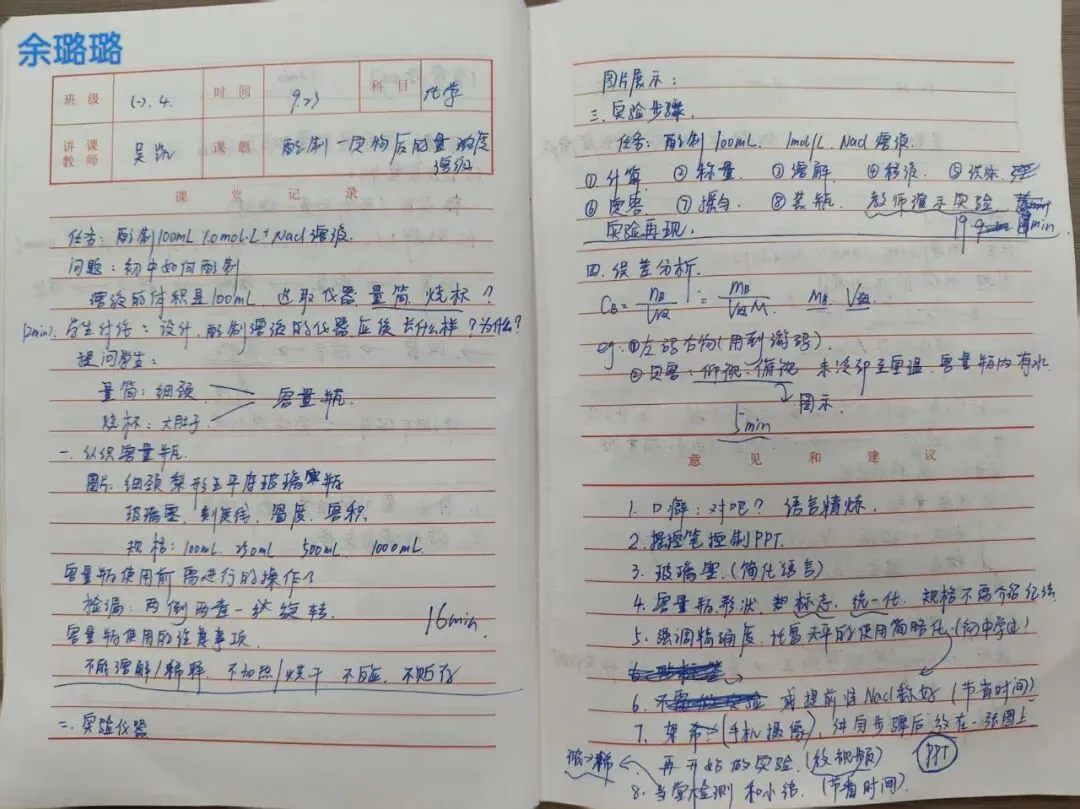 余璐璐
班级 (一).4. 时间 9.23 科目 化学
讲课教师 吴凯 课题 配制一定物质的量浓度溶液
课堂记录
任务:配制100mL 1.0mol·L⁻¹ Nacl溶液.
问题:初中如何配制
溶液的体积是100mL. 选取仪器.量筒.烧杯?
12min. 学生讨论:设计.配制溶液的仪器应该长什么样?为什么?
提问学生:
量筒:细颈
容量瓶
烧杯:大肚子
一.认识容量瓶.
图片:细颈梨形平底玻璃瓶
玻璃塞.刻度线.温度.容积
规格:100mL. 250mL 500mL 1000mL.
容量瓶使用前需进行的操作?
检漏:两倒两查一旋转 16min.
容量瓶使用的注意事项
不能溶解/稀释 不加热/烘干 不反应.不贮存
二.实验仪器
图片展示:
三.实验步骤.
任务:配制100mL. 1mol/L. Nacl溶液.
①计算 ②称量 ③溶解 ④移液 ⑤洗涤
⑥定容 ⑦摇匀 ⑧装瓶 教师演示实验
实验再现.
四.误差分析.
C_B = n_B/V液 = m_B/V液M. m_B V液
eg.①左码右物(用到游码).
②定容:仰视.俯视 未冷却至室温.容量瓶内有水
图示
5min
意见和建议
1.口癖:对吧? 语言精炼.
2.摇控笔控制PPT.
3.玻璃塞.(简化语言)
4.容量瓶形状.标志.统一化.规格不需介绍
5.强调精确度.托盘天平的使用简略化(初中学过)
6. 或提前准Nacl称好(节省时间)
7. (手机摄像),伴同步骤后放在一张图上
PPT
浓→稀 再开始做实验.(放视频)
8.当堂检测和小结.(节省时间).